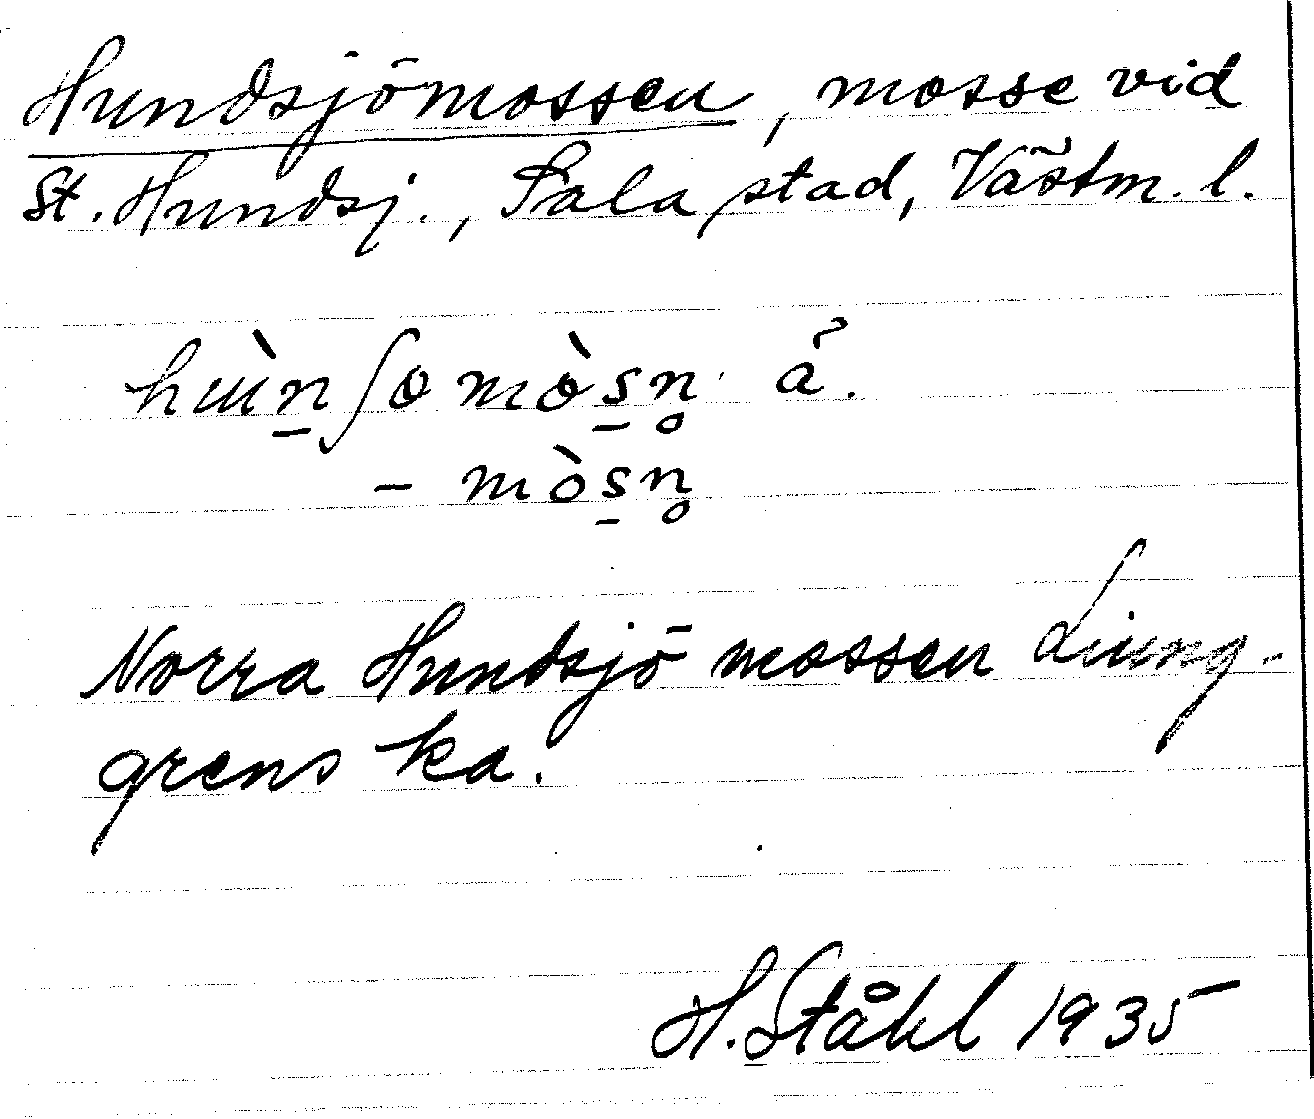 Hundsjömossen, mosse vid
St. Hundsj., Sala stad, Västm. l.
hɯ̀n̠ʃomòs̠n̥ å.
- mòs̠n̥
Norra Hundsjö mossen Liung-
grens ka.
H. Ståhl 1935